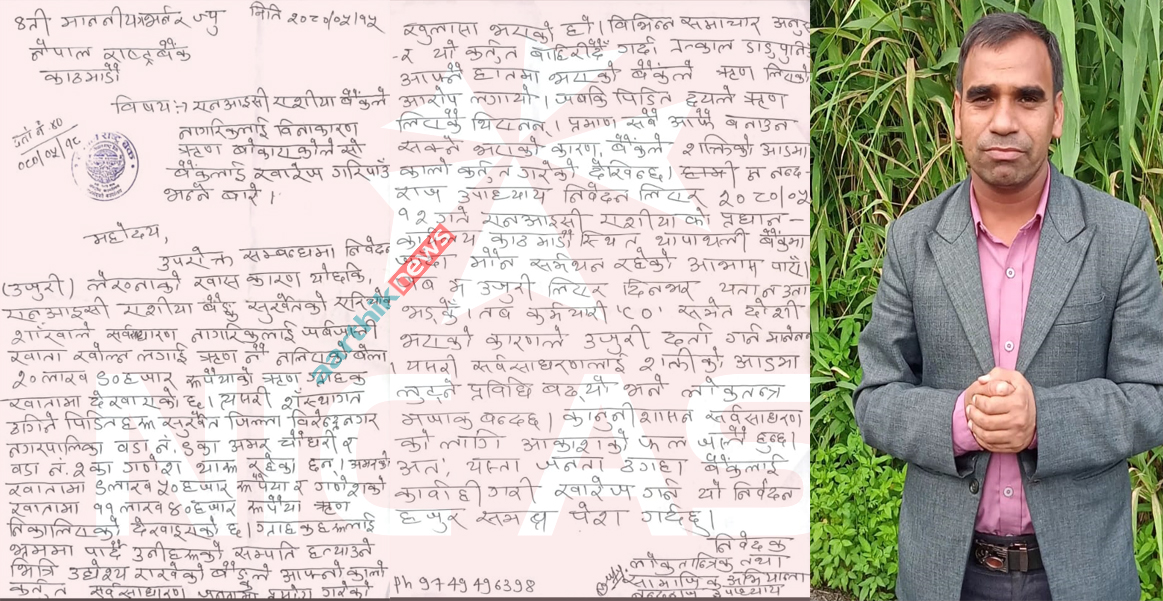 मिति २०८०/०५/१५
श्री माननीय गभर्नर ज्यु
नेपाल राष्ट्र बैंक
काठमाडौं
विषय:- एनआइसी एशिया बैंकले
नागरिकलाई विनाकारण
ऋण बोकाएकोले सो
बैंकलाई खारेज गरिपाउँ
भन्ने बारे ।
दर्ता नं. ४०
०८०/०५/१८
महोदय,
उपरोक्त सम्बन्धमा निवेदन
(उजुरी) लेख्नाको खास कारण यो हो कि,
एनआइसी एशिया बैंक सुर्खेतको एरिया
शाखाले सर्वसाधारण नागरिकलाई जबर्जस्ती
खाता खोल्न लगाई ऋण नै नलिएका बेला
२० लाख ६० हजार रूपैयाको ऋण ग्राहक
खातामा देखाएको छ। त्यसरी संस्थागत
ठगिने पिडितहरू सुर्खेत जिल्ला विरेन्द्रनगर
नगरपालिका वडा नं. ६ का अमर चौधरी र
वडा नं. २ का गणेश थारू रहेका छन्। अमरको
खातामा ६ लाख ५० हजार रूपैया र गणेशको
खातामा ११ लाख ४० हजार रूपैया ऋण
निकालिएको देखाइएको छ। ग्राहकहरूलाई
भ्रममा पार्दै उनीहरूको सम्पति हत्याउने
भित्रि उद्देश्य राखेको बैंकले आफ्नो कालो
सर्वसाधारण
खुलासा भएको हो। विभिन्न समाचार
र यो कर्तुत बाहिरिदै गर्दा तत्काल डाडु पुनिउ
आफ्नै हातमा भएको बैंकले ऋण लिएको
आरोप लगायो। जबकि पिडित द्वयले ऋण
लिएकै थिएनन्। प्रमाण सबै आफै बनाउन
सक्ने भएको कारण, बैंकले शक्तिको आडमा
कालो कर्तुत गरेको देखिन्छ। म नन्द-
राज उपाध्याय निवेदन लिएर २०८०/०५/
१२ गते एनआइसी एशियाको प्रधान-
कार्यालय काठमाडौं स्थित थापाथली बैंकमा
जाँदा मौन समर्थन रहेको आभाष पाएँ।
जब म उजुरी लिएर दिनभर यता न उता
तब कर्मचारी 'CO' समेत दोषी
भएको कारणले उजुरी दर्ता गर्न मानेनन
। यसरी सर्वसाधारणलाई शक्तिको आडमा
लुट्ने प्रविधि बढ्यो भने लोकतन्त्र
मजाक बन्दछ। कानुनी शासन सर्वसाधारण
को लागि आकाशको फल जस्तै हुन्छ।
अतः यस्ता जनता ठगाहा बैंकलाई
कार्वाही गरी खारेज गर्न यो निवेदन
हजुर समक्ष पेश गर्दछु।
निवेदक
लोकतान्त्रिक तथा
सामाजिक अभियन्ता
नन्दराज उपाध्याय
Ph 9749496398
aarthik news
NIC AS